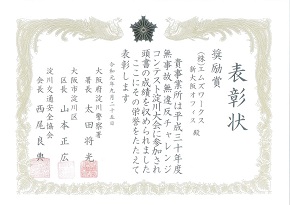 表彰状
奨励賞
(株)エムズワークス
新大阪オフィス 殿
貴事業所は平成三十年度
無事故無違反チャレンジ
コンテスト淀川大会に参加され
頭書の成績を収められました
ここにその栄誉をたたえて
表彰します
令和元年九月二十五日
大阪府淀川警察署
署長 太田将光
大阪市淀川区
区長 山本正広
淀川交通安全協会
会長 西尾良典